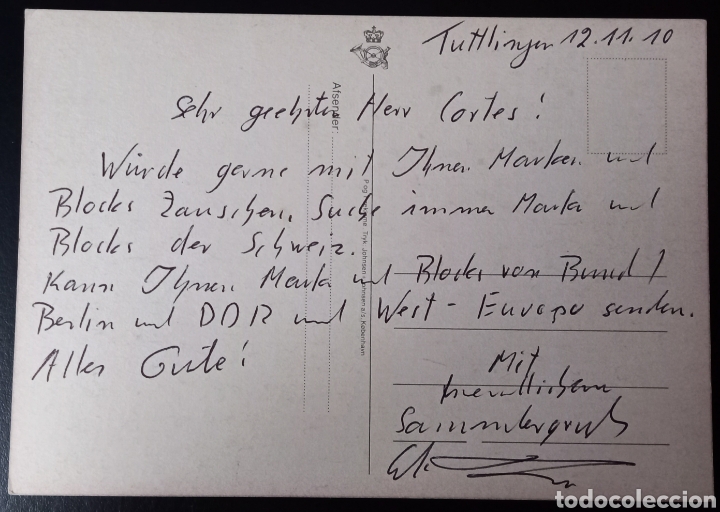 Tuttlingen 12.11.10
Afsender:
Sehr geehrter Herr Cortes!
Würde gerne mit Ihnen Marken und
Blocks Tauschen. Suche immer Marken und
Blocks der Schweiz.
Kann Ihnen Marken und Blocks von Bund /
Berlin und DDR und West-Europa senden.
Alles Gute!
Mit
freundlichem
Sammlergruß
Tryk. Johnsen Johnsen a/s, København
todocoleccion